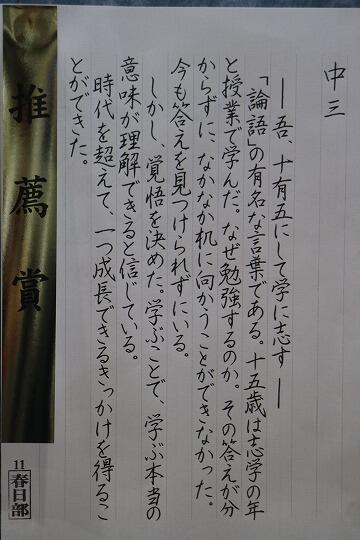 中三
―吾、十有五にして学に志す―
「論語」の有名な言葉である。十五歳は志学の年
と授業で学んだ。なぜ勉強するのか。その答えが分
からずに、なかなか机に向かうことができなかった。
今も答えを見つけられずにいる。
しかし、覚悟を決めた。学ぶことで、学ぶ本当の
意味が理解できると信じている。
時代を超えて、一つ成長できるきっかけを得るこ
とができた。
推薦賞
11
春日部